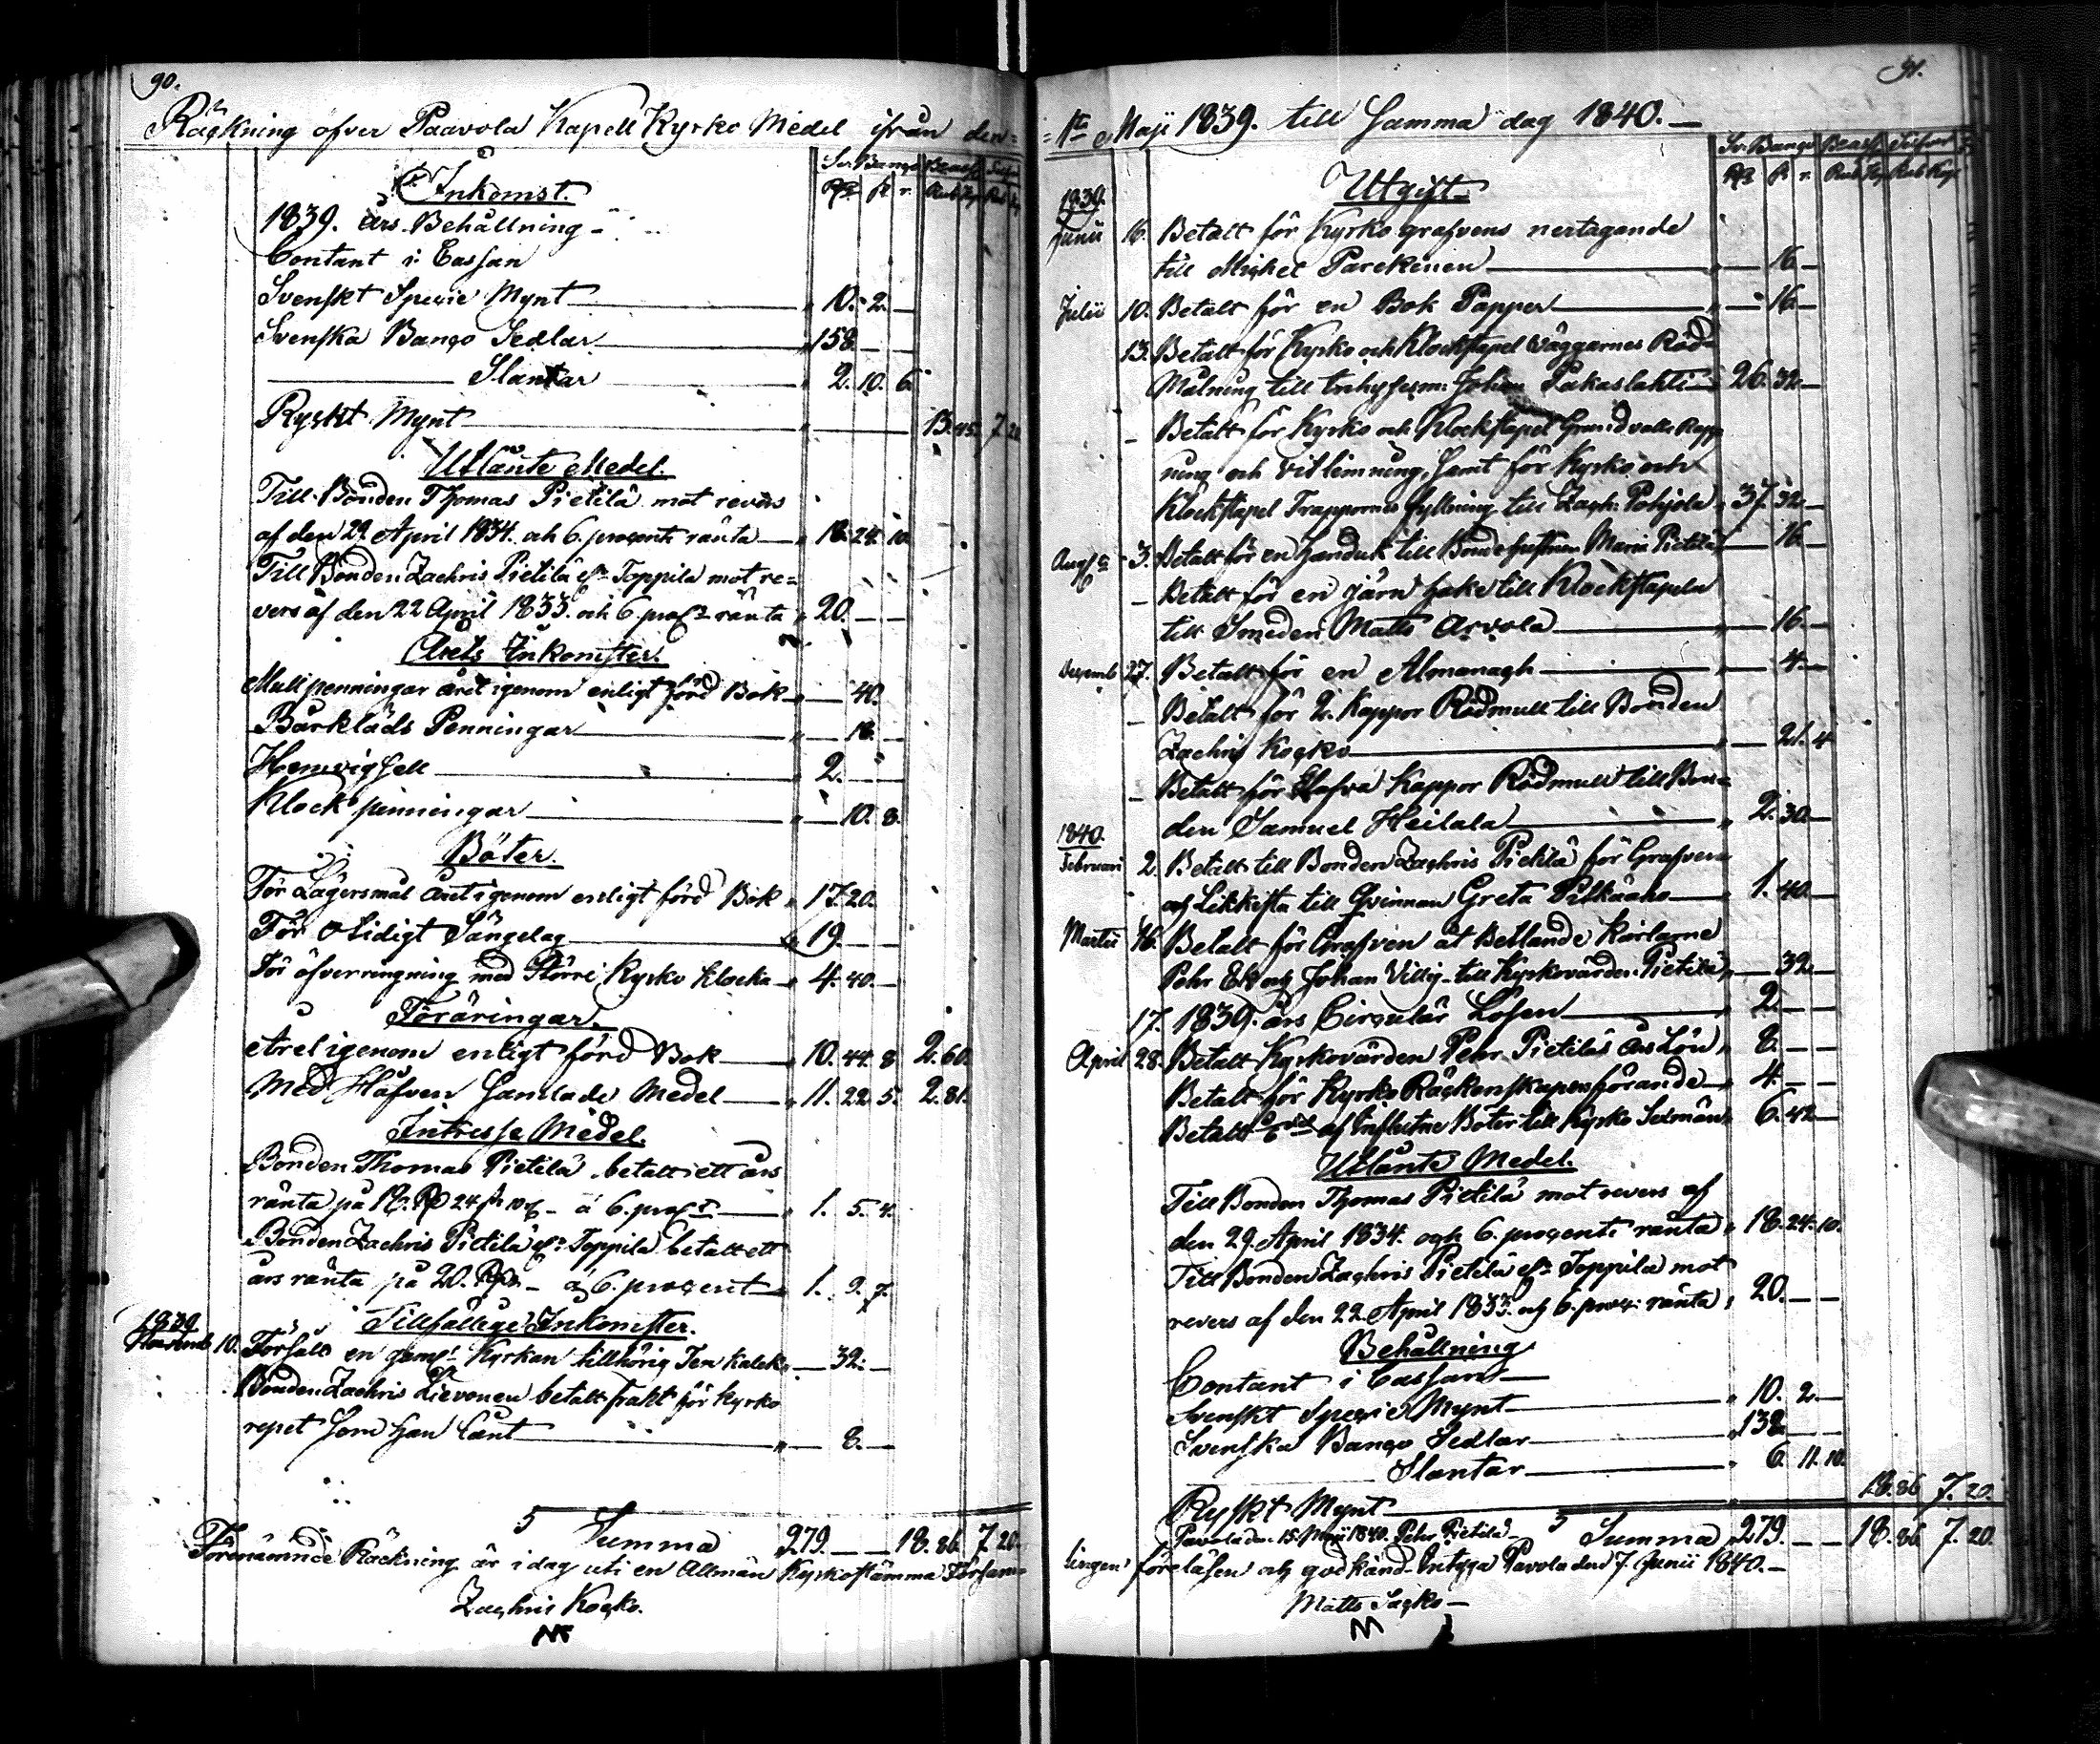 90.
Räckning öfver Paavola Kapell Kyrko Medel ifrån den
Sv. Banco
Inkomst.
1839. års Behållning
Contant i Cassan
Svenskt Specie Mynt 10. 2. —
Svenska Banco Sedlar 158. — —
— Slantar 2. 10. 6.
Ryskt Mynt 13. 45. 7 20
Utlånte Medel.
Till Bonden Thomas Pietilä mot revers
af den 29 April 1834. och 6. procents ränta 18. 24. 10.
Till Bonden Zachris Pietilä Toppila mot re=
vers af den 22 April 1833. och 6. ränta 20. — —
Årets Inkomster.
Mullpenningar året igenom enligt förd Bok — 40.
Bårkläds Penningar — 18. —
2. — —
Klock penningar — 10. 8.
Böter.
För Lägersmål året igenom enligt förd Bok 17. 20.
För Otidigt Sängelag 19. — —
För öfverringning med Större Kyrko Klocka 4. 40. —
Föräringar.
Året igenom enligt förd Bok 10. 44. 8 2. 60.
Med Håfven Samlade Medel 11. 22. 5. 2. 81.
Intresse Medel.
Bonden Thomas Pietilä betalt ett års
ränta på 18. 24 10 a 6. 1. 5. 4.
Bonden Zachris Pietilä Toppila betalt ett
års ränta på 20. a 6. procent 1. 9. 7.
Tillfällige Inkomster.
1839
10. Försålt en Kyrkan tillhörig — 32. —
Bonden Zachris Lievonen betalt frakt för Kyrko
repet som han lånt — 8. —
Summa 279. — — 18. 86. 7 20.
Förenämnde Räckning är i dag uti en Allmän Kyrkostämma Församl
Zachris Kocko.
91.
1 Maji 1839. till Samma dag 1840. —
Sv. Banco
Rub. Kop. Rub. Kop.
Utgift
1839.
Junii 16. Betalt för Kyrko grafvens nertagande
till Michel — 16 —
Julii 10. Betalt för en Bok Papper — 16 —
13. Betalt för Kyrko och Klockstapel Väggarnes Röd
Målning till Johan 26. 32 —
— Betalt för Kyrko och Klockstapel Grundvalls Rapp
ning och vitlimning, Samt för Kyrko och
Klockstapel Trappornes fyllning till Zach. Pohjola 37. 32 —
3. Betalt för en Handuk till Maria Pietilä — 16 —
— Betalt för en järn hake till Klockstapeln
till Smeden Matts Arvola — 16. —
Decemb 27. Betalt för en Almanach — 4 —
— Betalt för 2. Kappor Rödmull till Bonden
Zachris Kocko — 21. 4
— Betalt för Kappor Rödmull till Bon=
den Samuel Heilala 2. 30. —
1840.
Februari 2. Betalt till Bonden Zachris Pietilä för Grafven
och Likkista till Qvinnan Greta 1. 40 —
Martii 16. Betalt för Grafven åt Betlande Karlarne
Pehr och Johan till Kyrkovärden Pietilä — 32 —
17. 1839. års Circulär Lösen 2. — —
April 28. Betalt Kyrkovärden Pehr Pietiläs års Lön 8. — —
Betalt för Kyrko Räckenskapens förande 4. — —
Betalt af Influtne Böter till Kyrko Sexmän 6. 42 —
Utlånte Medel.
Till Bonden Thomas Pietilä mot revers af
den 29. April 1834. och 6. procents ränta 18. 24. 10.
Till Bonden Zachris Pietilä Toppila mot
revers af den 22 April 1833. och 6. ränta 20. — —
Behållning
Contant i Cassan —
Svenskt Specie Mynt 10. 2. —
Svenska Banco Sedlar 138. — —
Slantar 6. 11. 10.
Ryskt Mynt 18. 86 7. 20.
Pavola den 15 Maji 1840. Pehr Pietilä — Summa 279. — — 18. 86 7. 20.
lingen föreläsen och godkänd. Intyga Pavola den 7. Junii 1840. —
Matts Sacko —